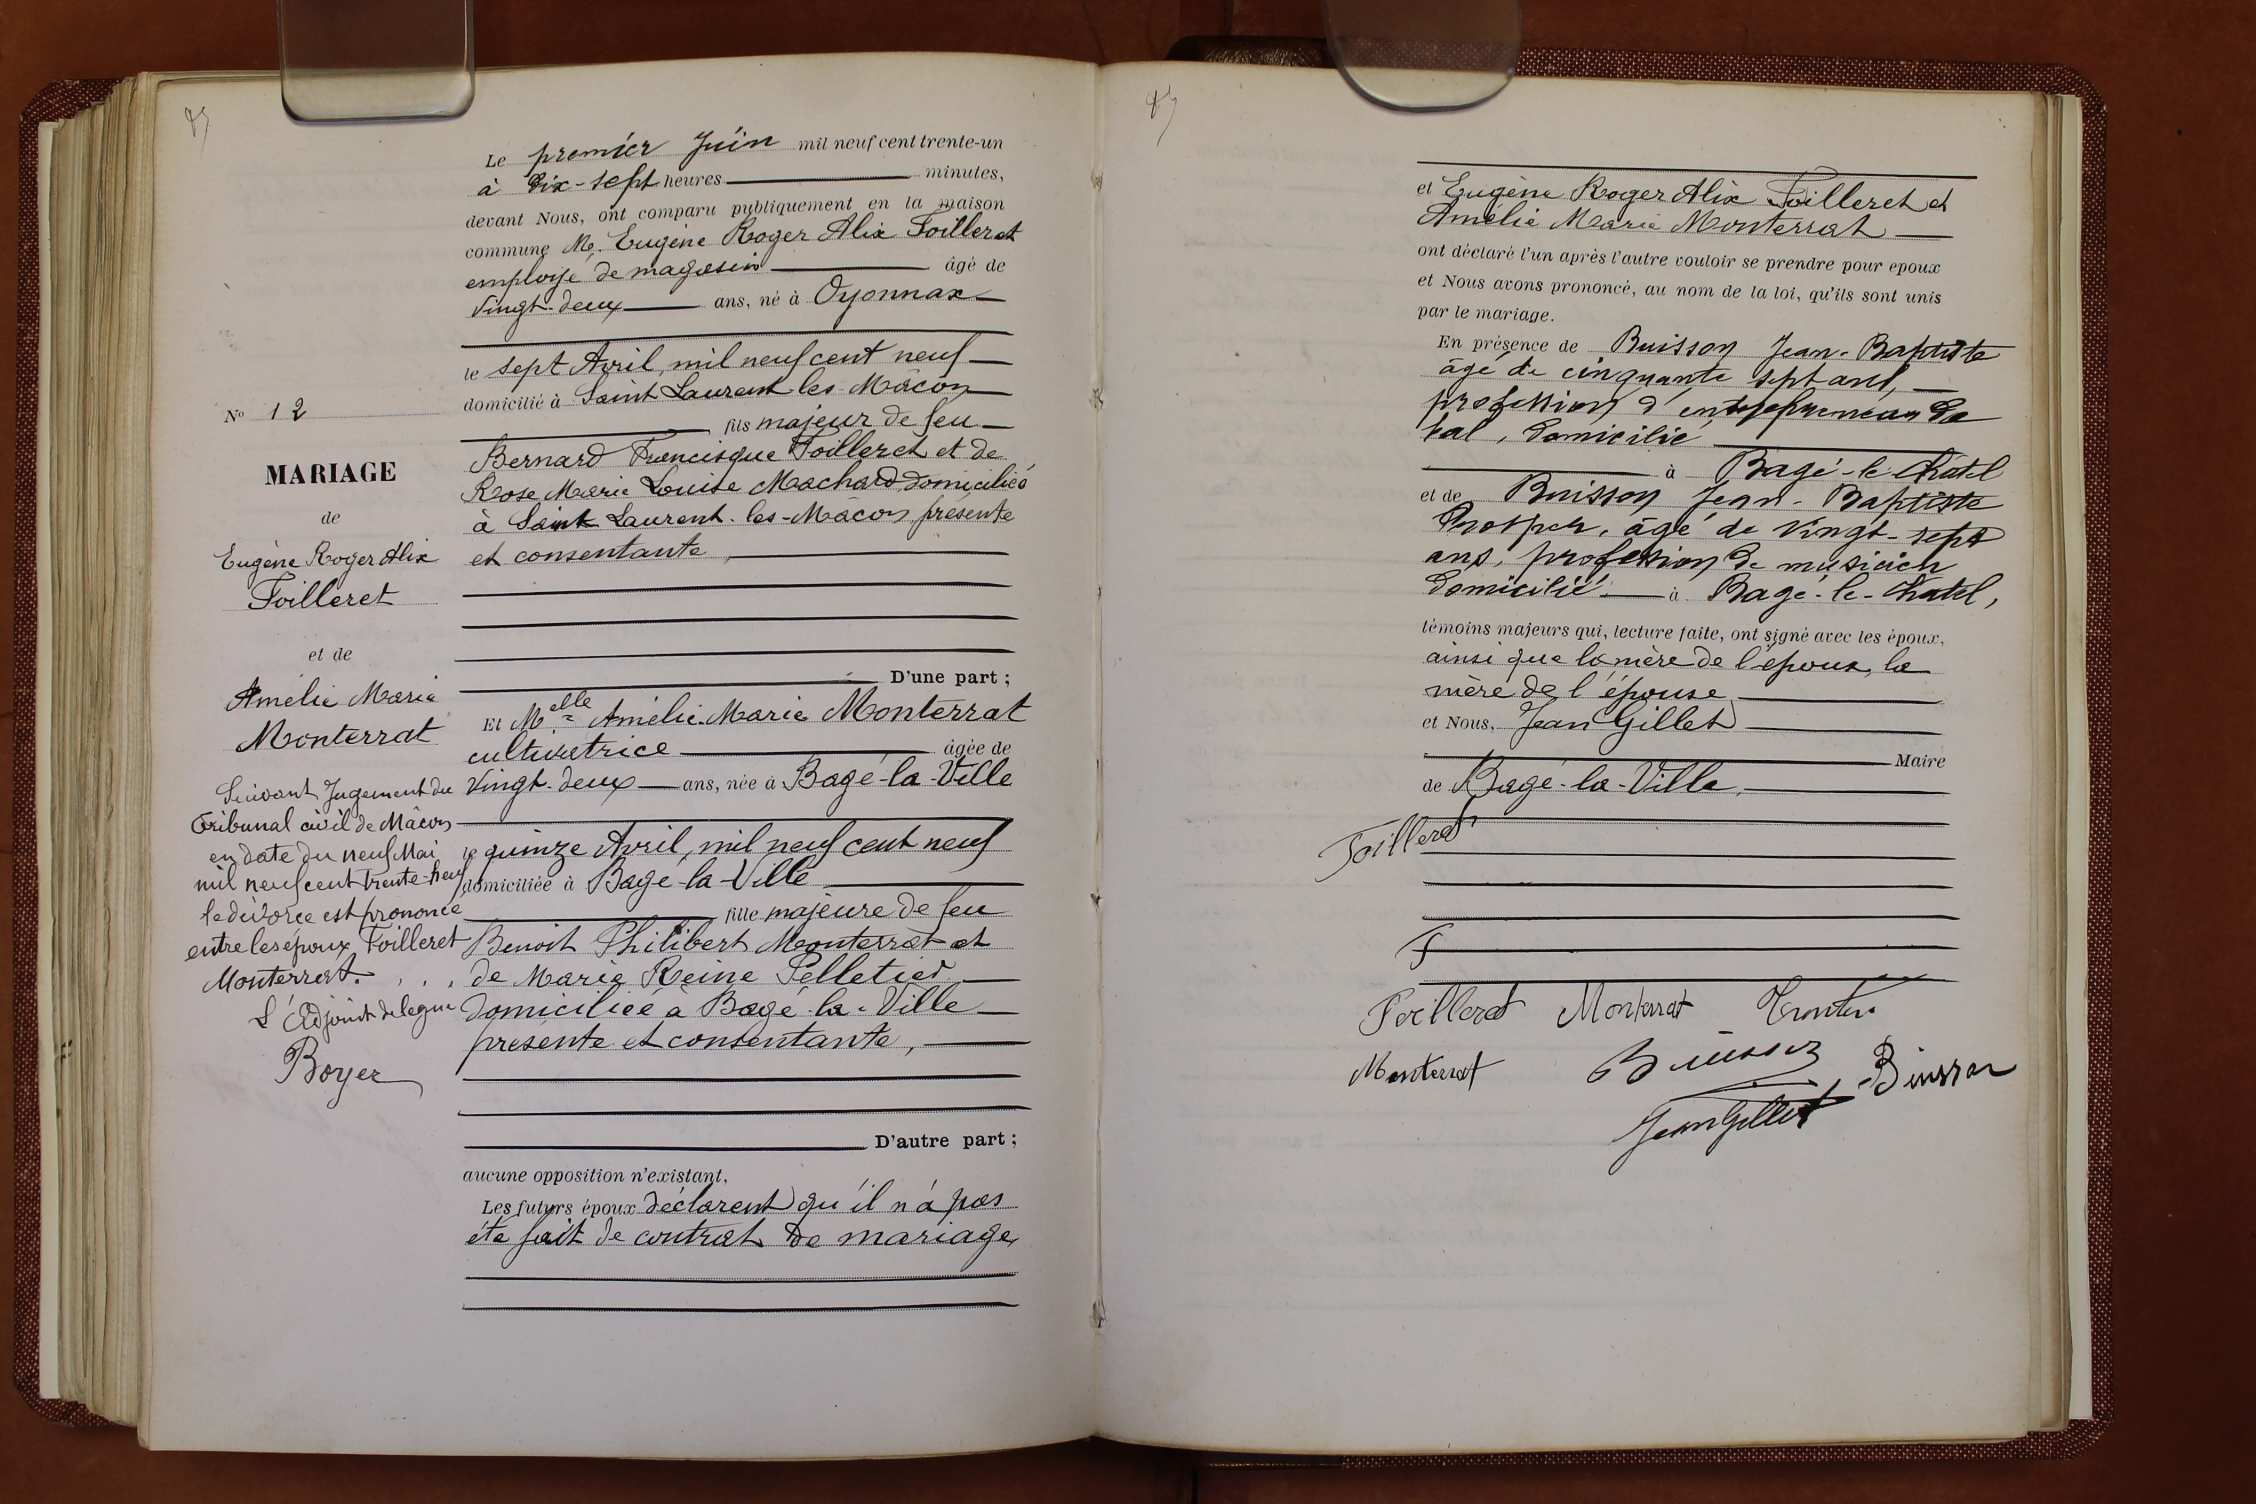 Le premier Juin mil neuf cent trente-un
à dix-sept heures minutes,
devant Nous, ont comparu publiquement en la maison
commune Mr. Eugène Roger Alix Foilleret
employé de magasin âgé de
vingt-deux ans, né à Oyonnax
le sept Avril, mil neuf cent neuf
domicilié à Saint Laurent-les-Mâcon
fils majeur de feu
Bernard Francisque Foilleret et de
Rose Marie Louise Machard domiciliés
à Saint Laurent-les-Mâcon présente
et consentante,
D'une part ;
Et Melle Amélie Marie Monterrat
cultivatrice âgée de
vingt-deux ans, née à Bagé-la-Ville
le quinze Avril, mil neuf cent neuf
domiciliée à Bagé-la-Ville
fille majeure de feu
Benoit Philibert Monterrat et
de Marie Reine Pelletier
domiciliée à Bagé-la-Ville
présente et consentante,
D'autre part ;
aucune opposition n'existant,
Les futurs époux déclarent qu'il n'a pas
été fait de contrat de mariage,
No 12
MARIAGE
de
Eugène Roger Alix
Foilleret
et de
Amélie Marie
Monterrat
Suivant Jugement du
Tribunal civil de Mâcon
en date du neuf Mai
mil neuf cent trente-neuf
le divorce est prononcé
entre les époux Foilleret
Monterrat. . . .
L'Adjoint délégué
Boyer
et Eugène Roger Alix Foilleret et
Amélie Marie Monterrat
ont déclaré l'un après l'autre vouloir se prendre pour epoux
et Nous avons prononcé, au nom de la loi, qu'ils sont unis
par le mariage.
En présence de Buisson Jean-Baptiste
âgé de cinquante sept ans,
profession d'entrepreneur de
bal, domicilié
à Bagé-le-Chatel
et de Buisson Jean-Baptiste
Prosper, âgé de vingt-sept
ans, profession de musicien
domicilié à Bagé-le-Chatel,
témoins majeurs qui, lecture faite, ont signé avec les époux,
ainsi que la mère de l'époux, la
mère de l'épouse
et Nous, Jean Gillet
Maire
de Bagé-la-Ville.
Foilleret
F
Foilleret Monterrat
Monterrat Buisson Buisson
Jean Gillet